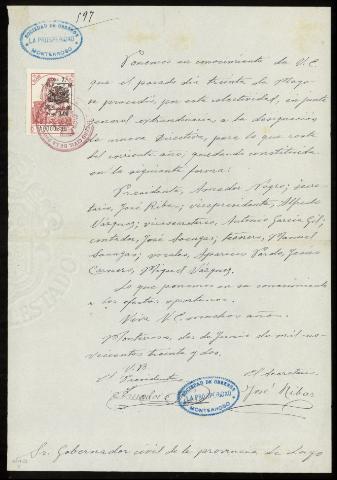 597
SOCIEDAD DE OBREROS
LA PROSPERIDAD
MONTERROSO
Ponemos en conocimiento de V.E
que el pasado día treinta de Mayo
se procedió, por esta colectividad, en junta
general extraordinaria, a la designación
de nueva Directiva, para lo que resta
del corriente año, quedando constituida
en la siguiente forma:
Presidente, Amador Negro; secre-
tario, José Ribas; vicepresidente, Alfredo
Vázquez; vicesecretario, Antonio García Gil;
contador, José Saengas; tesorero, Manuel
Saengas; vocales, Aparicio Pardo, Jesús
Carnero, Miguel Vázquez.
Lo que ponemos en su conocimiento
a los efectos oportunos.
Viva V.E muchos años.
Monterroso, dos de Junio de mil no-
vecientos treinta y dos.
V.B
El Presidente El Secretario
Amador José Ribas
SOCIEDAD DE OBREROS
LA PROSPERIDAD
MONTERROSO
Sr. Gobernador civil de la provincia de Lugo
ESTADO